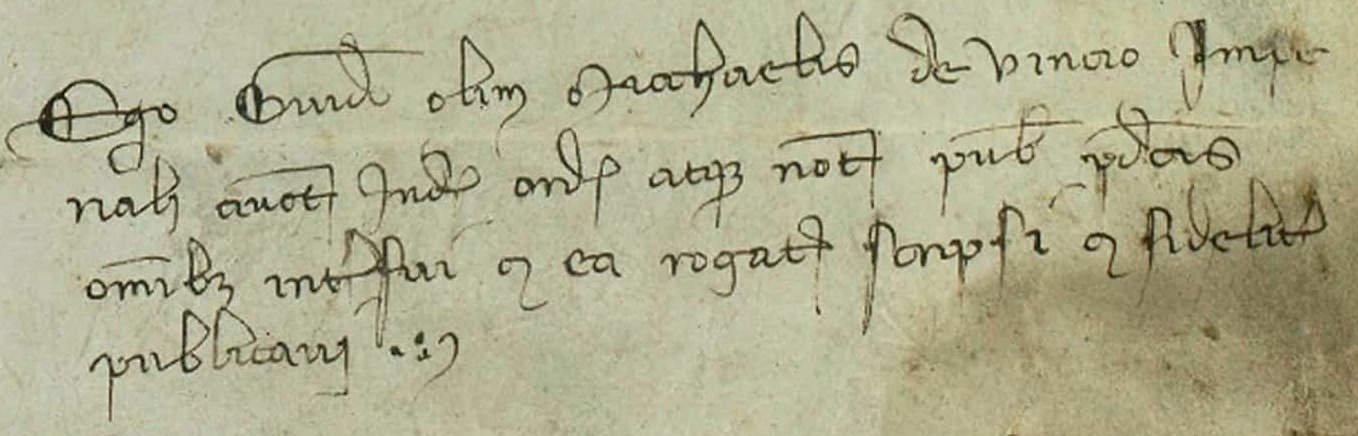 Ego Guid olim Michaelis de Vincio Impe
riali auct Iudex ord atque not pub pdcis
omibz interfui et ea rogat scripsi et fidelit
publicavi